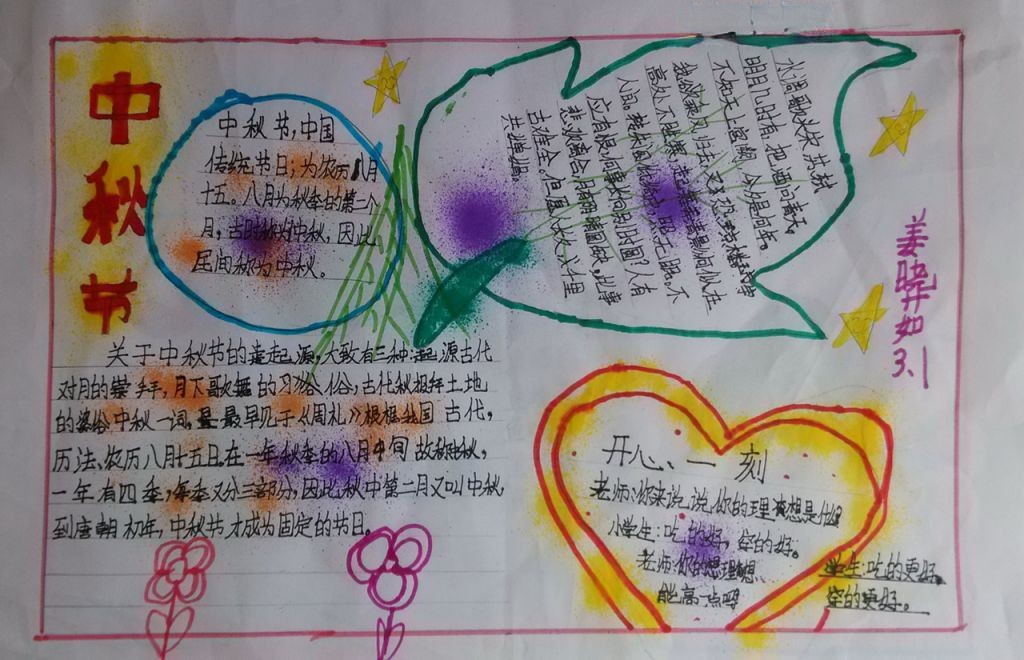 中秋节
中秋节,中国
传统节日;为农历八月
十五。八月为秋季的第二个
月,古时称为仲秋,因此
民间称为中秋。
水调歌头 苏轼
明月几时有,把酒问青天,
不知天上宫阙,今夕是何年。
我欲乘风归去,又恐琼楼玉宇
高处不胜寒,起舞弄清影何似在
人间,转朱阁,低绮户,照无眠。不
应有恨,何事长向别时圆,人有
悲欢离合,月有阴晴圆缺,此事
古难全。但愿人长久,千里
共婵娟。
姜晓卉如
3.1
关于中秋节的起源,大致有三种:起源古代
对月的崇拜,月下歌舞的习俗,古代秋报拜土地
的 俗中秋一词,最早见于《周礼》根据我国古代,
历法、农历八月十五日、在一年秋季的八月中间 故称中秋,
一年有四季,每季又分三部分,因此秋中第二月又叫中秋,
到唐朝初年,中秋节才成为固定的节日。
开心、一刻
老师:你来说说你的理想是什么
小学生:吃的好,穿的好。
老师:你的想理想
能高一点吗
学生:吃的更好,
穿的更好。